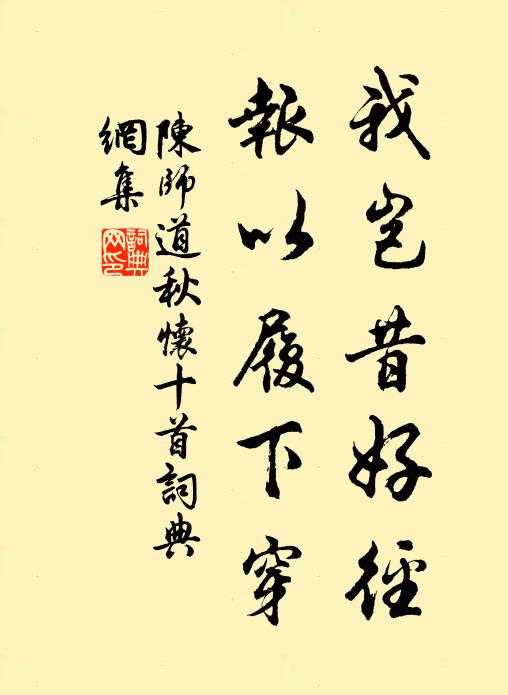 我岂昔好径
報以履下穿
陳師道秋懷十首詞典
網集
詞典
网印